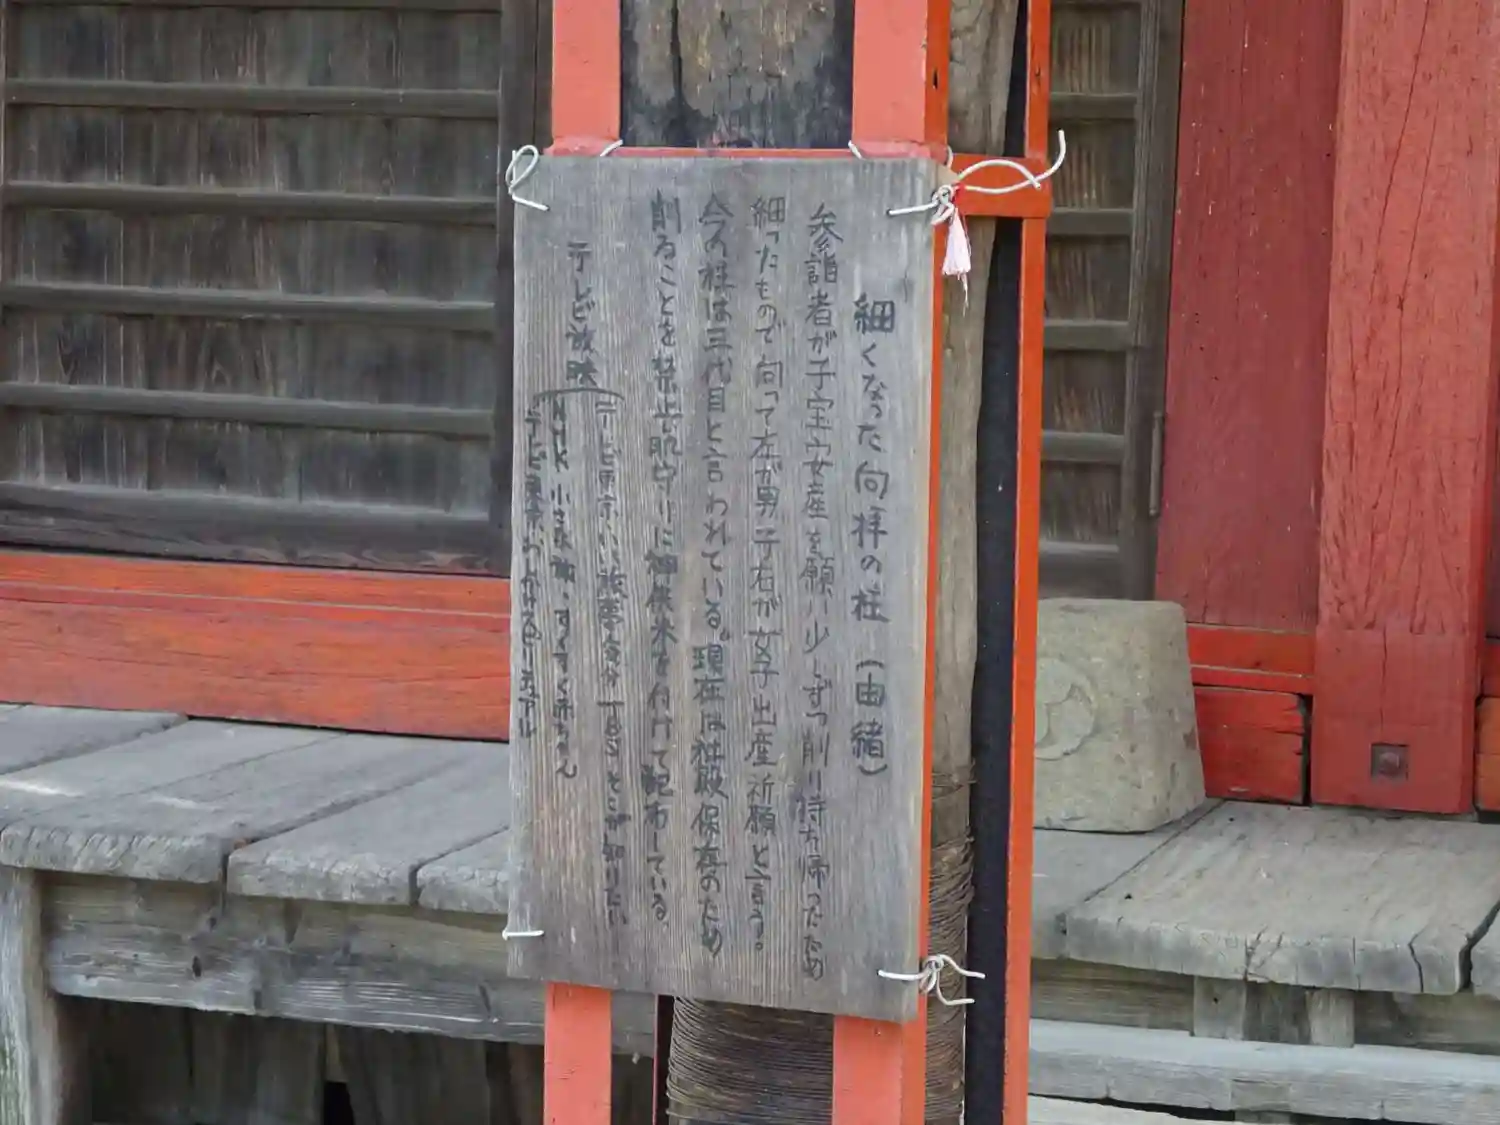 細くなった向拝の柱（由緒）
参詣者が子宝安産を願い少しずつ削り持ち帰ったため
細ったもので向って左が男子右が女子出産祈願と言う。
今の柱は三代目と言われている。現在は社殿保存のため
削ることを禁止肌守りに神供米を付けて配布している。
テレビ放映
テレビ東京 いい旅夢気分 TBS そこが知りたい
NHK 小さな旅、すくすく赤ちゃん
テレビ東京